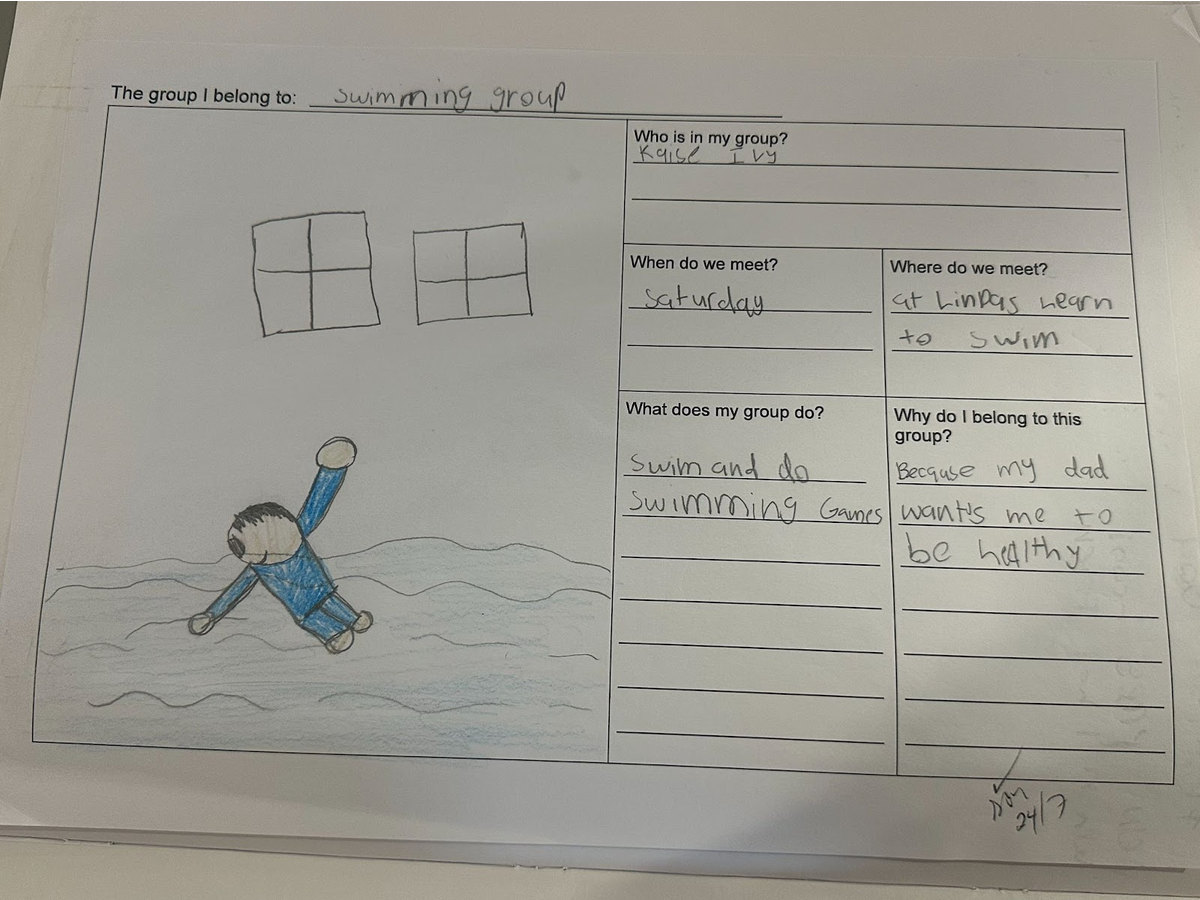 The group I belong to: swimming group
Who is in my group?
Kaise Ivy
When do we meet?
Saturday
Where do we meet?
at LinDas Learn
to swim
What does my group do?
Swim and do
swimming Games
Why do I belong to this
group?
Because my dad
want's me to
be healthy
24/7